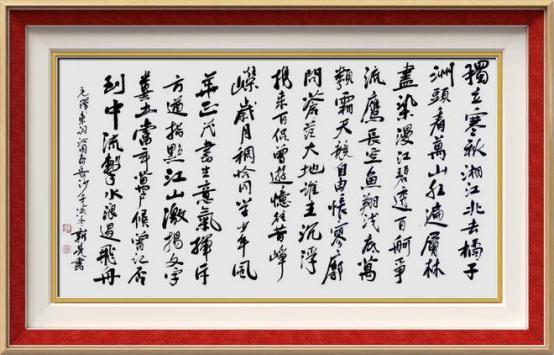 獨立寒秋湘江北去橘子
洲頭看萬山紅遍層林
盡染漫江碧透百舸爭
流鷹長空魚翔浅底萬
類霜天競自由悵寥廓
問蒼茫大地誰主沉浮
携來百侣曾遊憶往昔崢
嶸歲月稠恰同學少年風
華正茂書生意氣揮斥
方遒指點江山激揚文字
糞土當年萬户侯曾記否
到中流擊水浪遏飛舟
毛澤東詞沁園春長沙 書